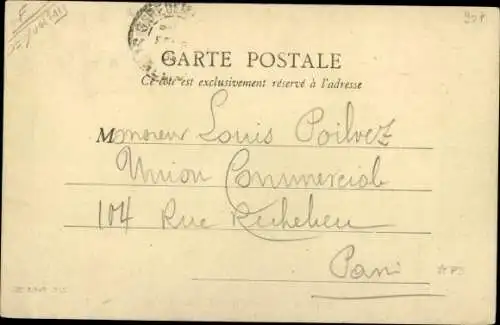 CARTE POSTALE
Ce côté est exclusivement réservé à l'adresse
Monsieur Louis Poilvez
Union Commerciale
104 Rue Richelieu
Paris